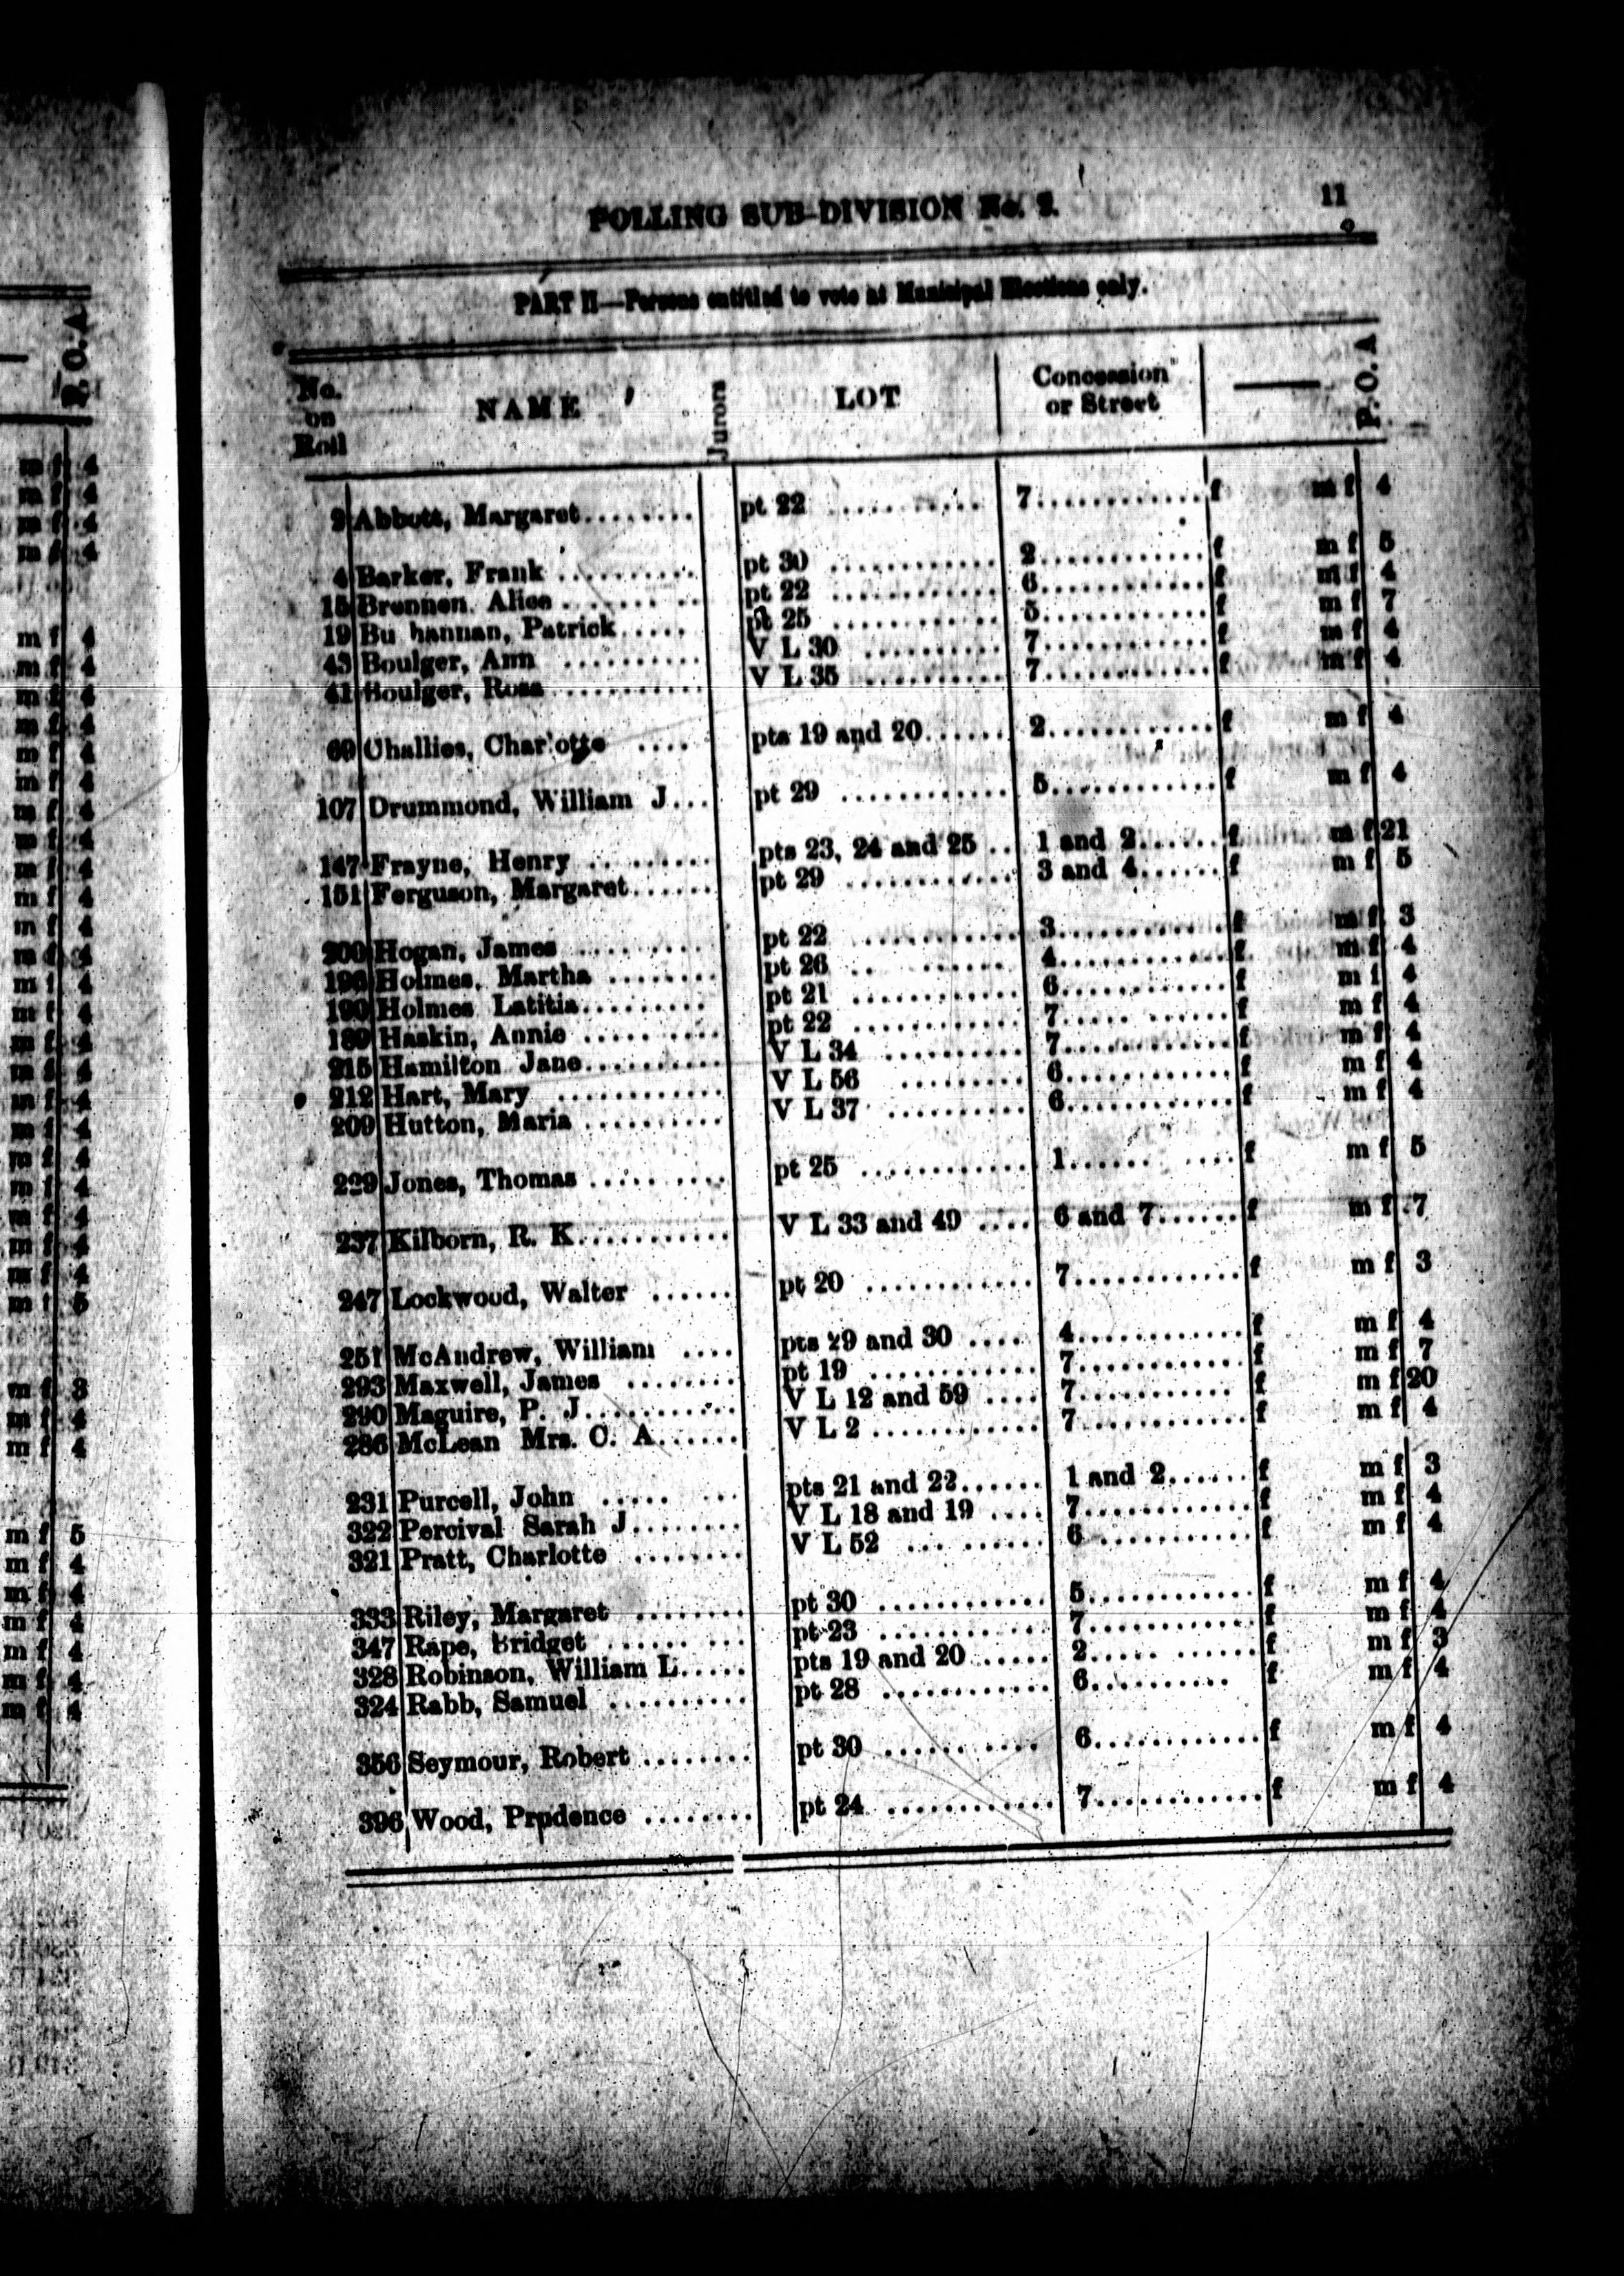 POLLING SUB-DIVISION No. 2. 11
PART II—Persons entitled to vote at Municipal Elections only.
No. on Roll NAME Jurors LOT Concession or Street P.O.A
2 Abbott, Margaret........ pt 22 ........... 7............ f m f 4
4 Barker, Frank .......... pt 30 ............ 2............ f m f 5
15 Brennen, Alice ......... pt 22 ............ 6............ f m f 4
19 Bu hannan, Patrick..... pt 25 ............ 5............ f m f 7
43 Boulger, Ann .......... V L 30 .......... 7............ f m f 4
41 Boulger, Rosa .......... V L 35 .......... 7............ f m f 4
69 Challies, Char'otte .... pts 19 and 20...... 2............ f m f 4
107 Drummond, William J... pt 29 ............ 5............ f m f 4
147 Frayne, Henry ......... pts 23, 24 and 25 .. 1 and 2...... f m f 21
151 Ferguson, Margaret...... pt 29 ............ 3 and 4...... f m f 5
200 Hogan, James .......... pt 22 ............ 3............ f m f 3
Holmes, Martha ........ pt 26 .. ....... 4............ f m f 4
190 Holmes Latitia......... pt 21 ............ 6............ f m f 4
189 Haskin, Annie ......... pt 22 ............ 7..... ...... f m f 4
215 Hamilton Jane.......... V L 34 .......... 7............ f m f 4
212 Hart, Mary ............ V L 56 ......... 6............ f m f 4
209 Hutton, Maria .......... V L 37 .......... 6............ f m f 4
229 Jones, Thomas ..... .... pt 25 ............ 1...... .... f m f 5
237 Kilborn, R. K........... V L 33 and 49 .... 6 and 7...... f m f 7
247 Lockwood, Walter ...... pt 20 ............ 7............ f m f 3
251 McAndrew, William .... pts 29 and 30 .... 4............ f m f 4
293 Maxwell, James ........ pt 19 ............ 7............ f m f 7
290 Maguire, P. J........... V L 12 and 59 .... 7........... f m f 20
286 McLean Mrs. C. A...... V L 2 ............ 7............ f m f 4
231 Purcell, John ..... ... pts 21 and 22...... 1 and 2...... f m f 3
322 Percival Sarah J........ V L 18 and 19 .... 7........... f m f 4
321 Pratt, Charlotte ........ V L 52 ... ...... 6 ........... f m f 4
333 Riley, Margaret ........ pt 30 ............ 5............ f m f 4
347 Rape, Bridget ...... ... pt 23 ............ 7............ f m f 4
328 Robinson, William L..... pts 19 and 20 ..... 2..... ...... f m f 3
324 Rabb, Samuel .......... pt 28 ............ 6.......... f m f 4
356 Seymour, Robert ........ pt 30 ...... .... 6............ f m f 4
396 Wood, Prudence ........ pt 24 ............ 7............ f m f 4